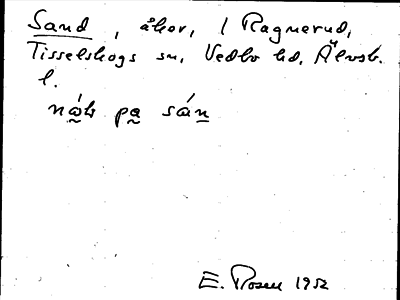 Sand, åkor, / Ragnerud,
Tisselskogs sn, Vedbo hd, Älvsb.
l.
på sán
E. Rosen 1952